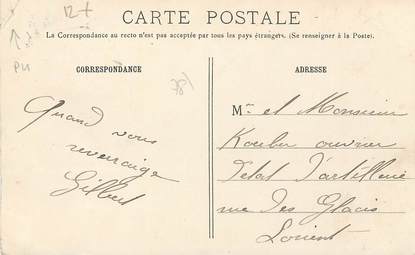 12+
CARTE POSTALE
La Correspondance au recto n'est pas acceptée par tous les pays étrangers. (Se renseigner à la Poste).
CORRESPONDANCE
Quand vous
reverrai-je
Gilbert
ADRESSE
Mr et Monsieur
ouvrier
d'artillerie
rue des Glacis
Lorient